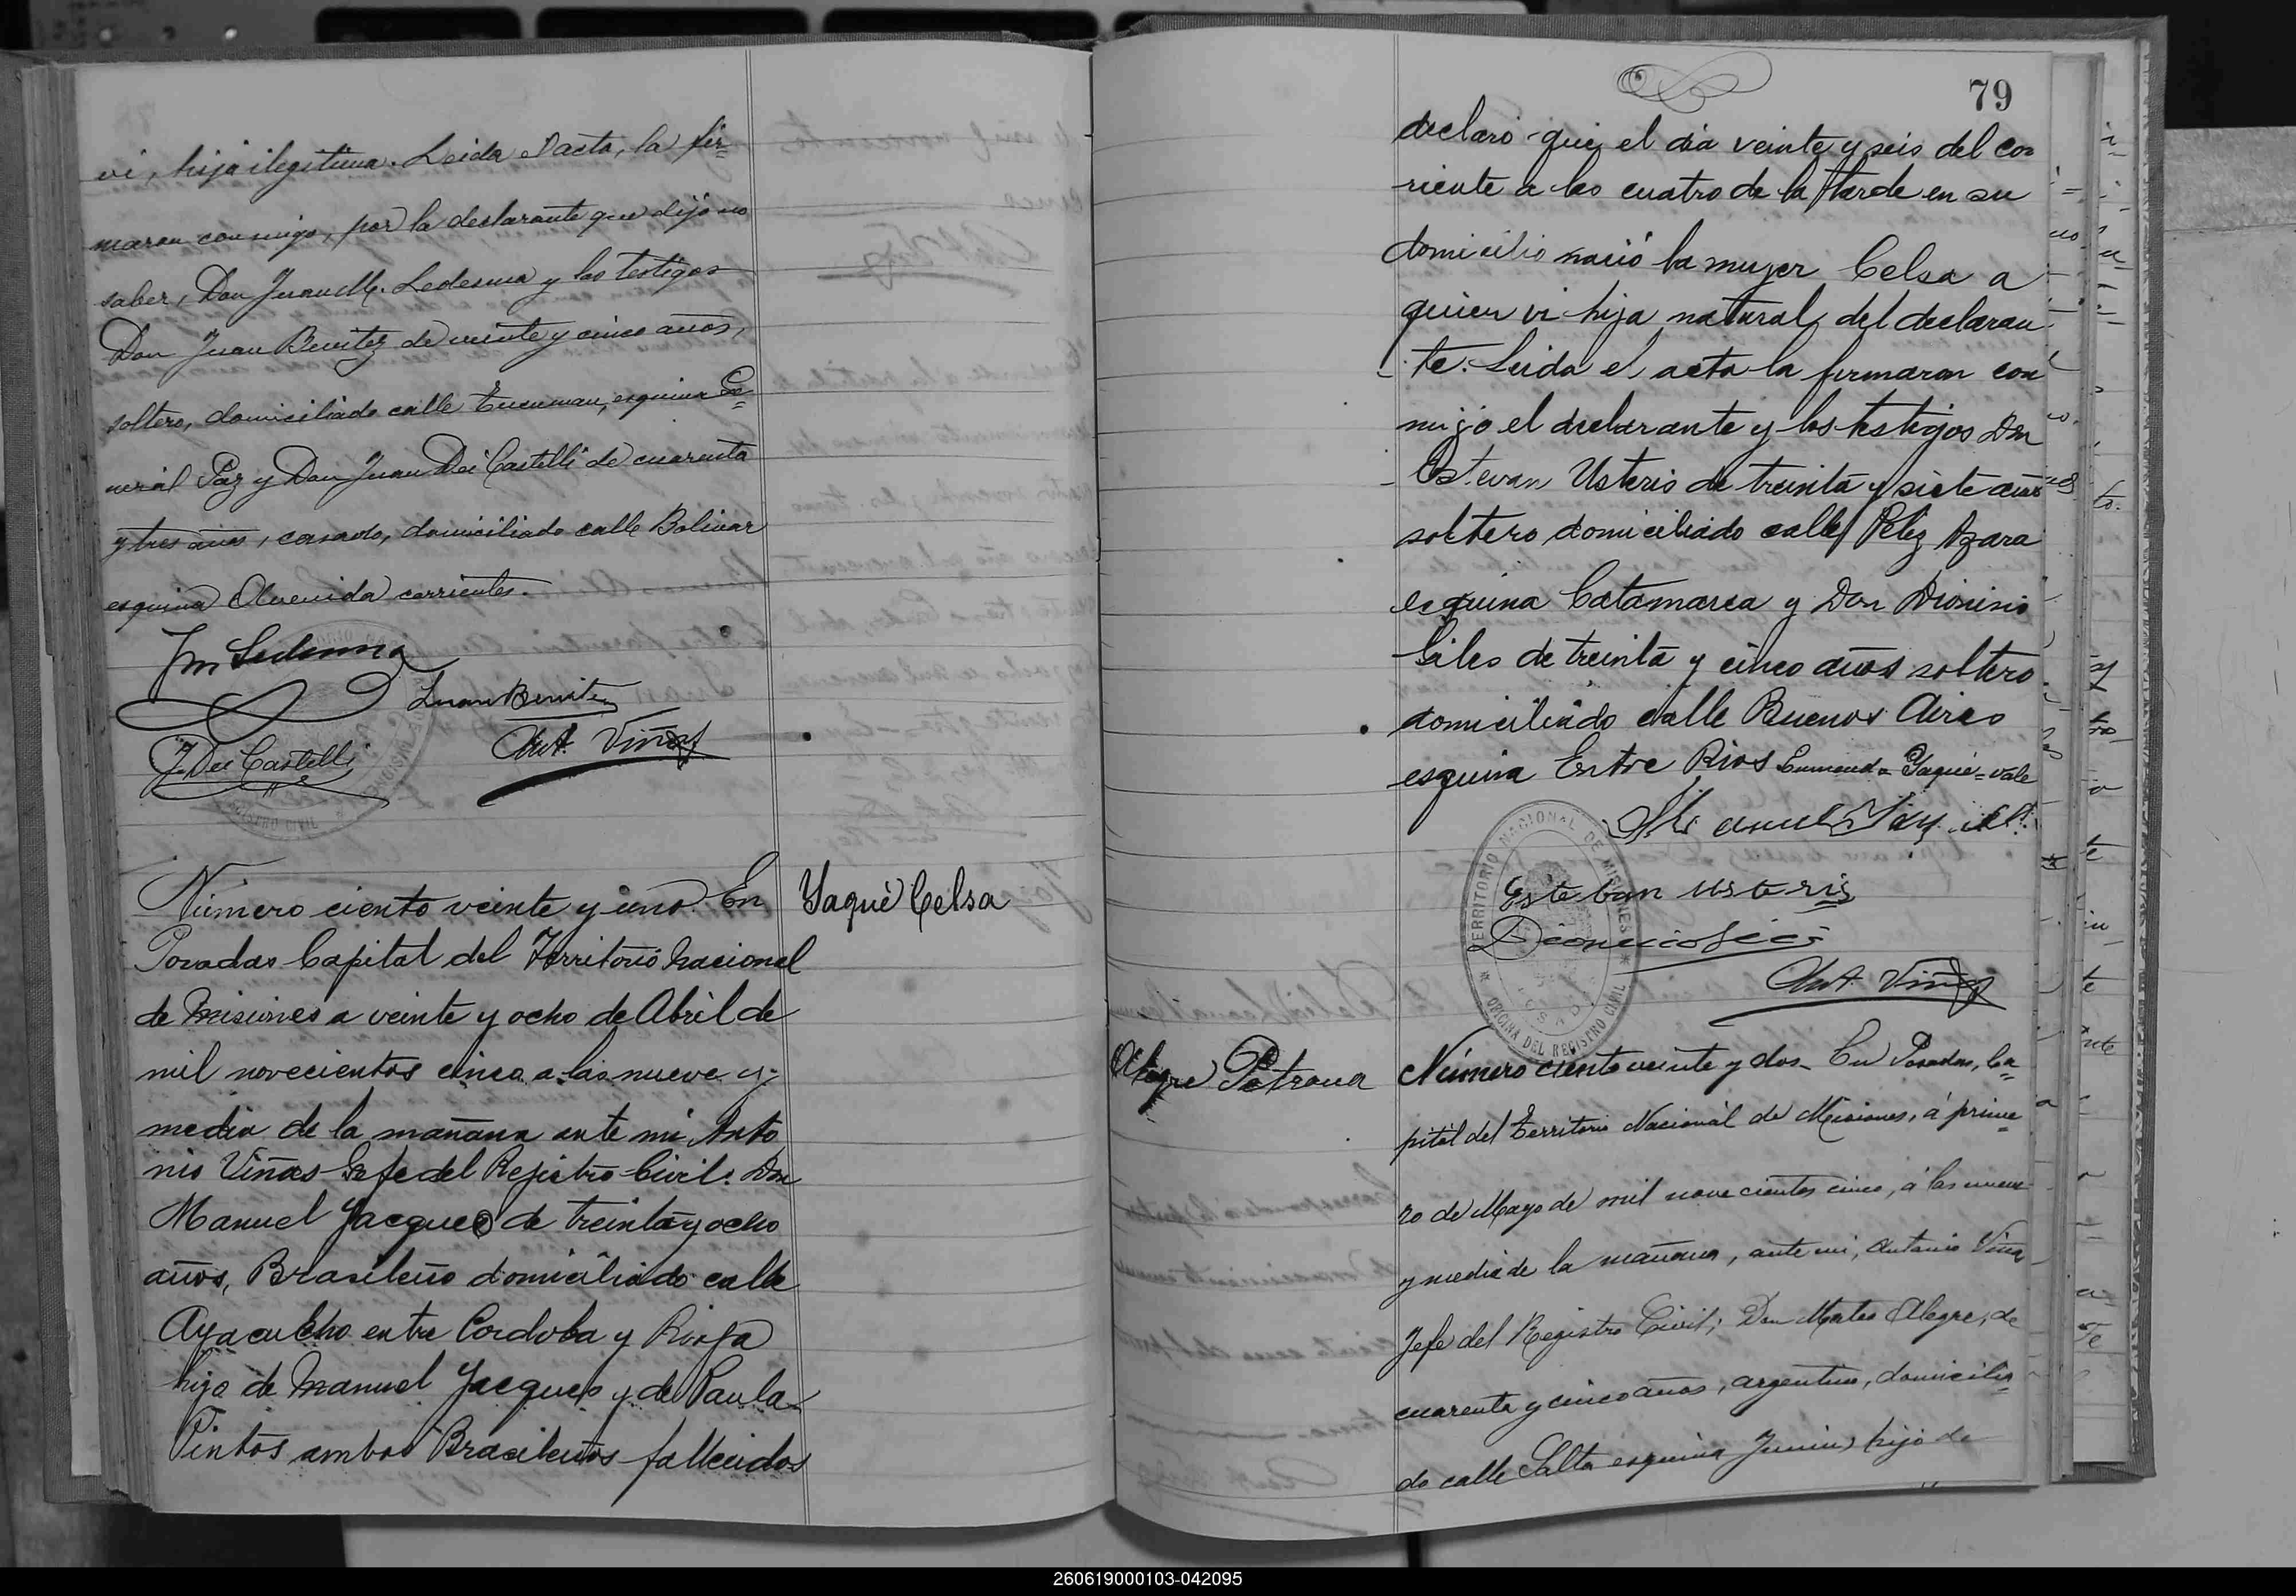 vi, hija ilegitima. Leida el acta, la fir=
maron conmigo, por la declarante que dijo no
saber, Don Juan M. Ledesma y los testigos
Don Juan Benitez de veinte y cinco años,
soltero, domiciliado calle Tucuman, esquina Ge=
neral Paz y Don Juan Dei Castelli de cuarenta
y tres años, casado, domiciliado calle Bolivar
esquina Avenida corrientes.
Jm Ledesma
Juan Benitez
J. Dei Castelli
Ant. Viñas
Número ciento veinte y uno. En
Yaqué Celsa
Posadas Capital del Territorio Nacional
de Misiones a veinte y ocho de Abril de
mil novecientos cinco a las nueve y
media de la mañana ante mi Anto
nio Viñas Gefe del Rejistro Civil. Don
Manuel Jacques de treinta y ocho
años, Brasileño domiciliado calle
Ayacucho entre Cordoba y Rioja
hijo de Manuel Jacques y de Paula
Pintos ambos Brasileños fallecidos
79
declaró que el dia veinte y seis del cor
riente a las cuatro de la tarde en su
domicilio nació la mujer Celsa a
quien vi hija natural del declaran
te. Leida el acta la firmaron con
migo el declarante y los testigos Don
Estevan Usteris de treinta y siete años
soltero domiciliado calle Feliz Azara
esquina Catamarca y Don Dionisio
Giles de treinta y cinco años soltero
domiciliado calle Buenos Aires
esquina Entre Rios Enmendo Yaqué=vale
Manuel
Esteban usteris
Ant. Viñas
TERRITORIO NACIONAL DE MISIONES
OFICINA DEL REGISTRO CIVIL
POSADAS
Alegre Petrona
Número ciento veinte y dos. En Posadas, Ca=
pital del Territorio Nacional de Misiones, á prime=
ro de Mayo de mil novecientos cinco, á las nueve
y media de la mañana, ante mi, Antonio Viñas
Jefe del Registro Civil; Don Mateo Alegre, de
cuarenta y cinco años, argentino, domicilia=
do calle Salta esquina Junin, hijo de
260619000103-042095